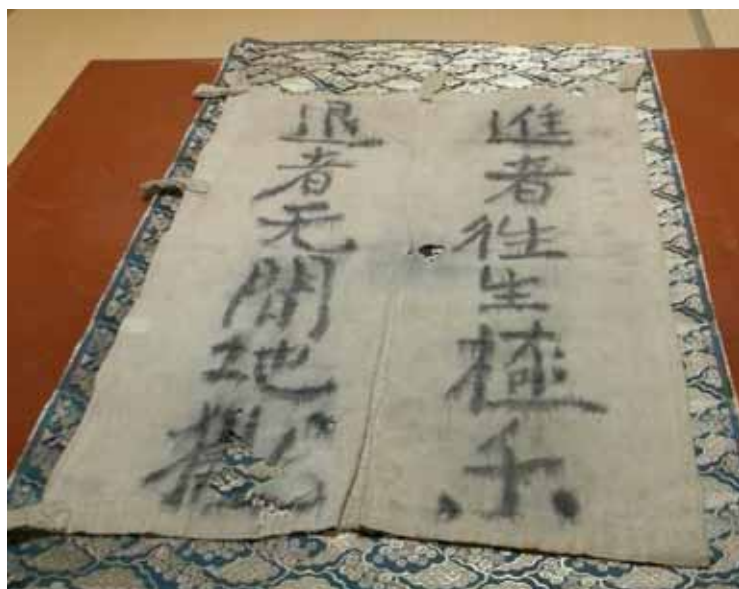 進者徃生極乐
退者无間地獄